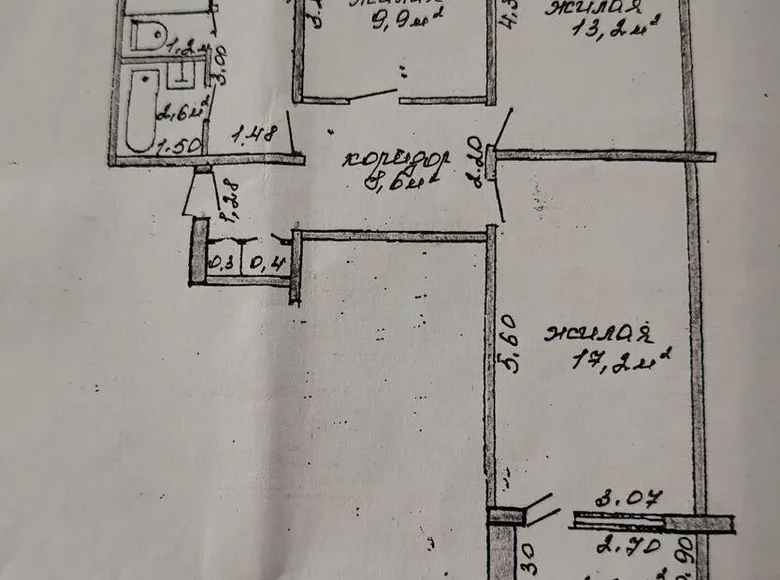 жилая
9,9м²
жилая
13,2м²
1,2м²
3.00
2,6м²
1.50
1.48
коридор
8,6м²
2.20
1,28
0,3
0,4
5.60
жилая
17,2м²
3.07
2.70